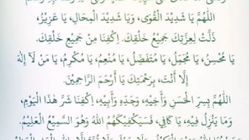 اللَّهُمَّ يَا شَدِيدَ الْقُوَى، وَيَا شَدِيدَ الْمِحَالِ، يَا عَزِيزُ،
ذَلَّتْ لِعِزَّتِكَ جَمِيعُ خَلْقِكَ. اكْفِنَا مِنْ جَمِيعِ خَلْقِكَ،
يَا مُحْسِنُ، يَا مُجَمِّلُ، يَا مُتَفَضِّلُ، يَا مُنْعِمُ، يَا مُكْرِمُ، يَا مَنْ لَا إِلَهَ
إِلَّا أَنْتَ، بِرَحْمَتِكَ يَا أَرْحَمَ الرَّاحِمِينَ.
اللَّهُمَّ بِسِرِّ الْحَسَنِ وَأَخِيهِ، وَجَدِّهِ وَأَبِيهِ، اكْفِنَا شَرَّ هَذَا الْيَوْمِ،
وَمَا يَنْزِلُ فِيهِ، يَا كَافِي، فَسَيَكْفِيكَهُمُ اللهُ وَهُوَ السَّمِيعُ الْعَلِيمُ.